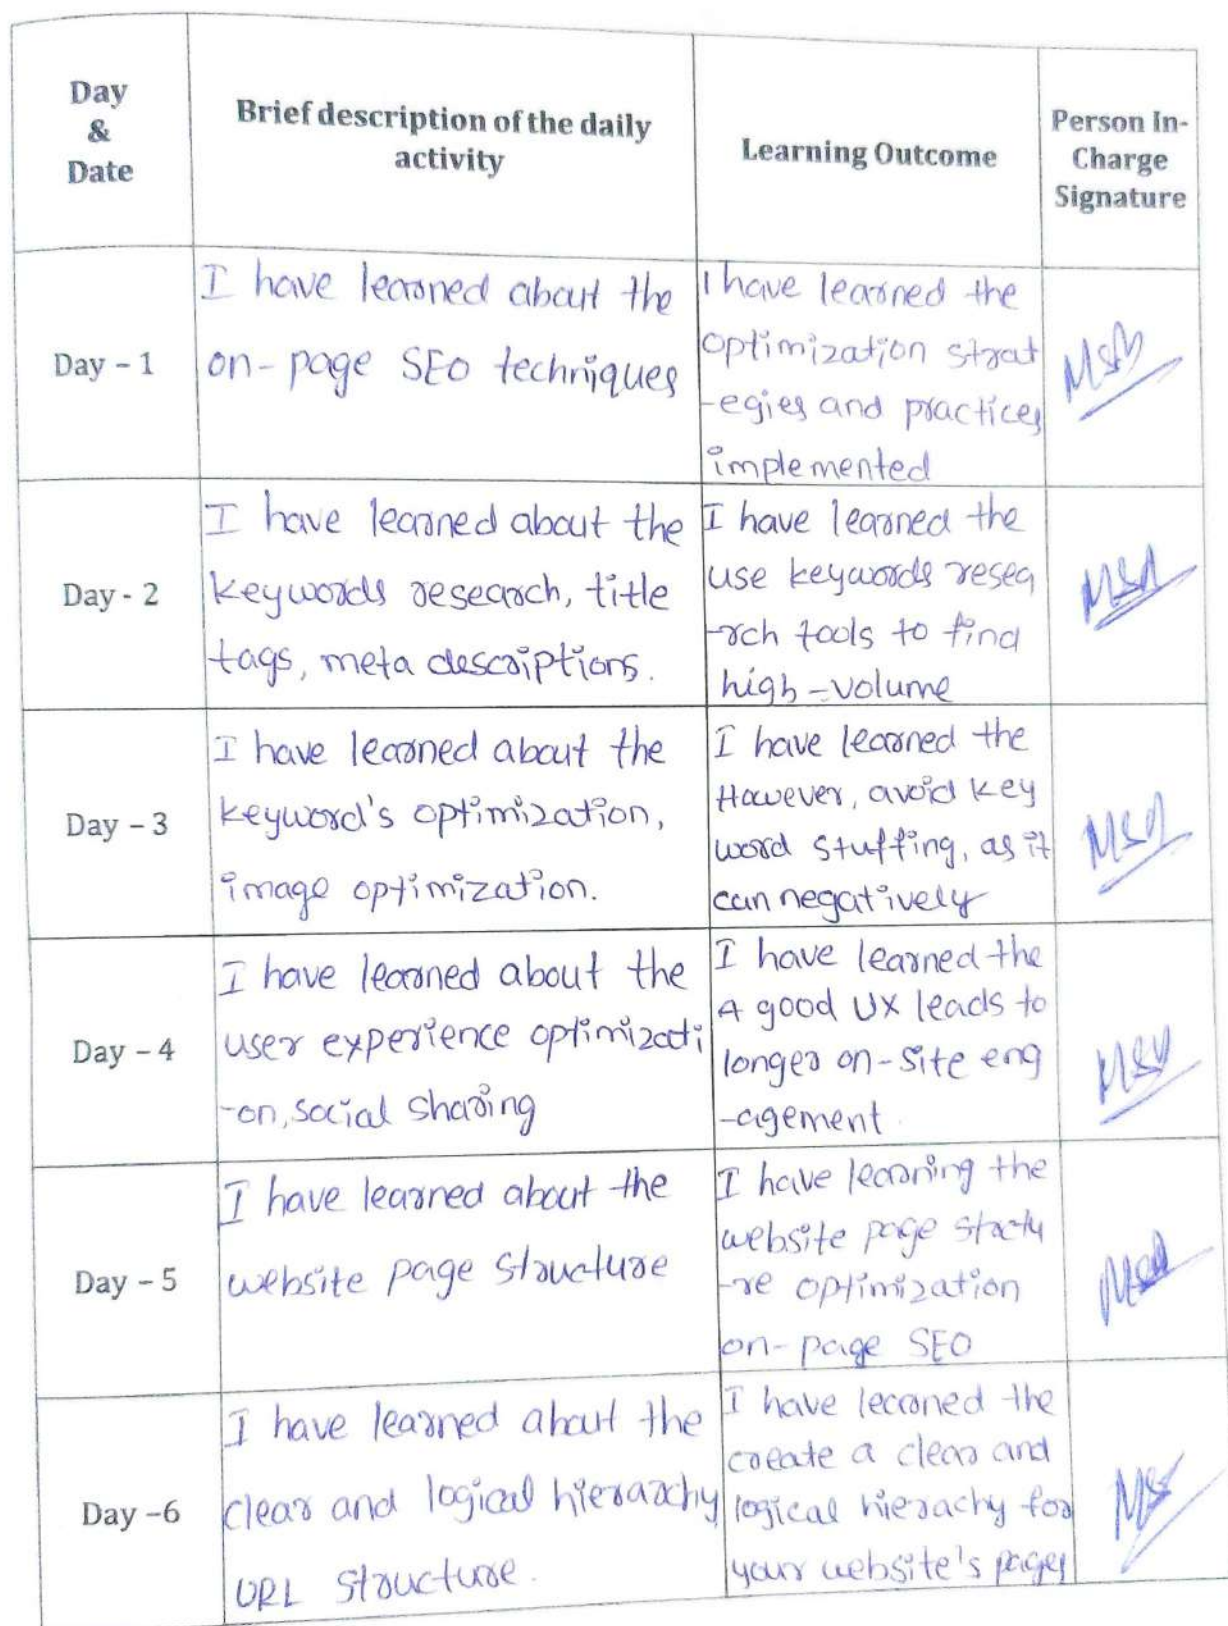 Day
&
Date
Brief description of the daily
activity
Learning Outcome
Person In-
Charge
Signature
Day – 1
I have learned about the
on-page SEO techniques
I have learned the
optimization strat
-egies and practices
implemented
Day - 2
I have learned about the
keywords research, title
tags, meta descriptions.
I have learned the
use keywords resea
-rch tools to find
high-volume
Day – 3
I have learned about the
keyword's optimization,
image optimization.
I have learned the
However, avoid key
word stuffing, as it
can negatively
Day – 4
I have learned about the
user experience optimizati
-on, social sharing
I have learned the
A good UX leads to
longer on-site eng
-agement.
Day – 5
I have learned about the
website page structure
I have learning the
website page stuctu
-re optimization
on-page SEO
Day –6
I have learned about the
clear and logical hierarchy
URL structure.
I have learned the
create a clear and
logical hierachy for
your website's pages